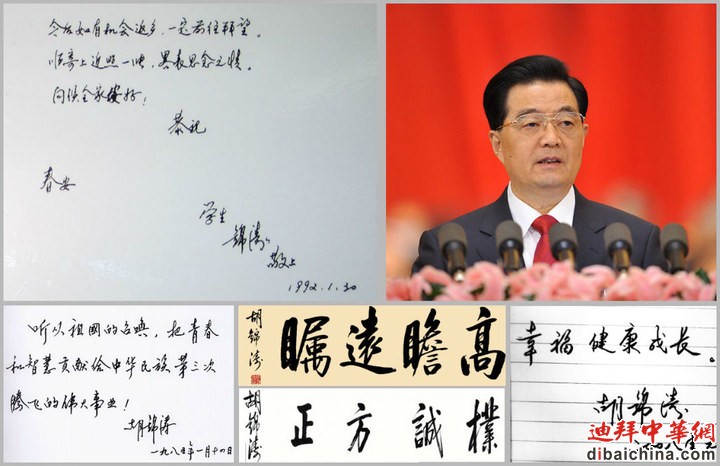 今后如有机会返乡，一定前往拜望。
顺寄上近照一帧，畧表思念之情。
问候全家安好！
恭祝
春安
学生
锦涛
敬上
1992.1.30
听从祖国的召唤，把青春
和智慧贡献给中华民族第三次
腾飞的伟大事业！
胡锦涛
一九八五年一月十四日
高瞻遠瞩
胡錦濤
樸誠方正
胡錦濤
幸福健康成长。
胡锦涛
迪拜中華網
dibaichina.com